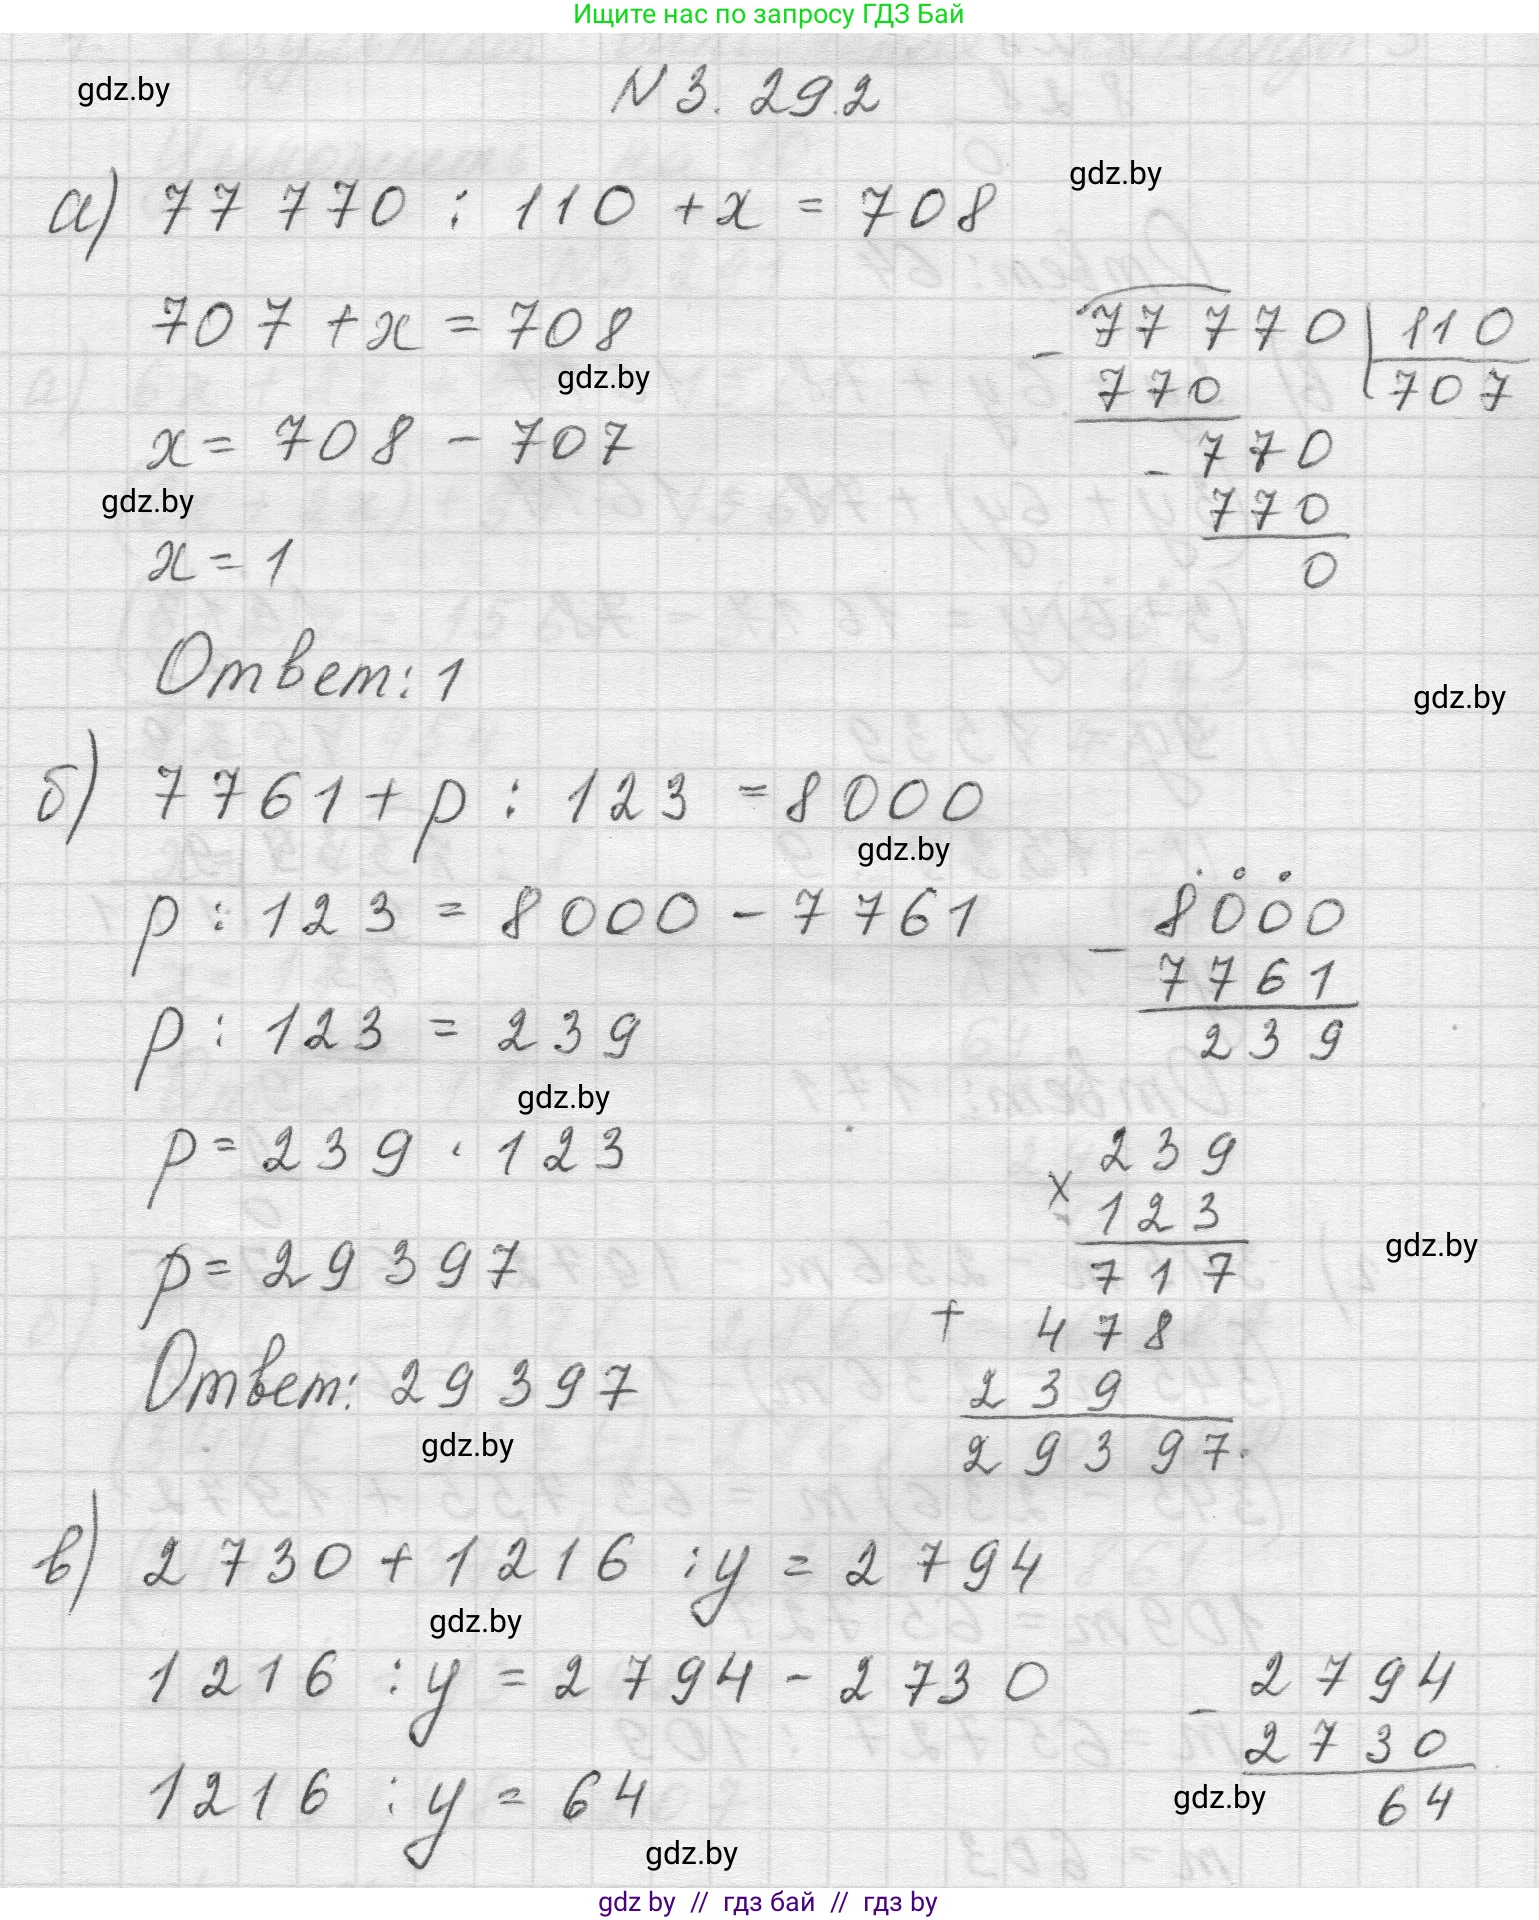 Ищите нас по запросу ГДЗ Бай
gdz.by
N 3.29.2
gdz.by
а) 77 770 : 110 + x = 708
707 + x = 708
77 770 | 110
- 770 707
gdz.by
x = 708 - 707
- 770
770
gdz.by
x = 1
0
Ответ: 1
gdz.by
б) 7761 + p : 123 = 8000
gdz.by
p : 123 = 8000 - 7761
- 8000
7761
239
p : 123 = 239
gdz.by
p = 239 · 123
239
× 123
717
+ 478
239
29397.
gdz.by
p = 29397
Ответ: 29397
gdz.by
в) 2730 + 1216 : y = 2794
gdz.by
1216 : y = 2794 - 2730
- 2794
2730
64
1216 : y = 64
gdz.by
gdz.by
gdz by // гдз бай // гдз by